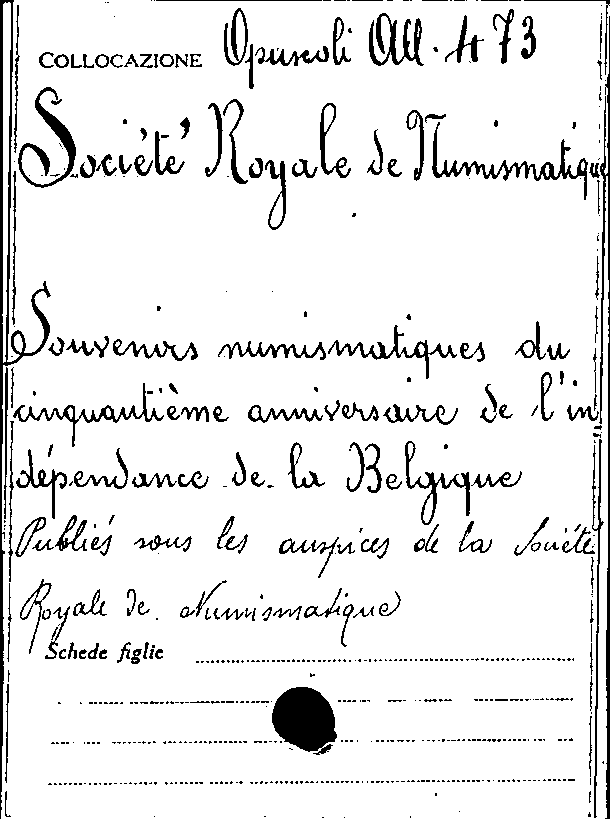 COLLOCAZIONE Opuscoli All. 473
Société Royale de Numismatique
Souvenirs numismatiques du
cinquantième anniversaire de l'in
dépendance de la Belgique
Publiés sous les auspices de la Société
Royale de Numismatique
Schede figlie